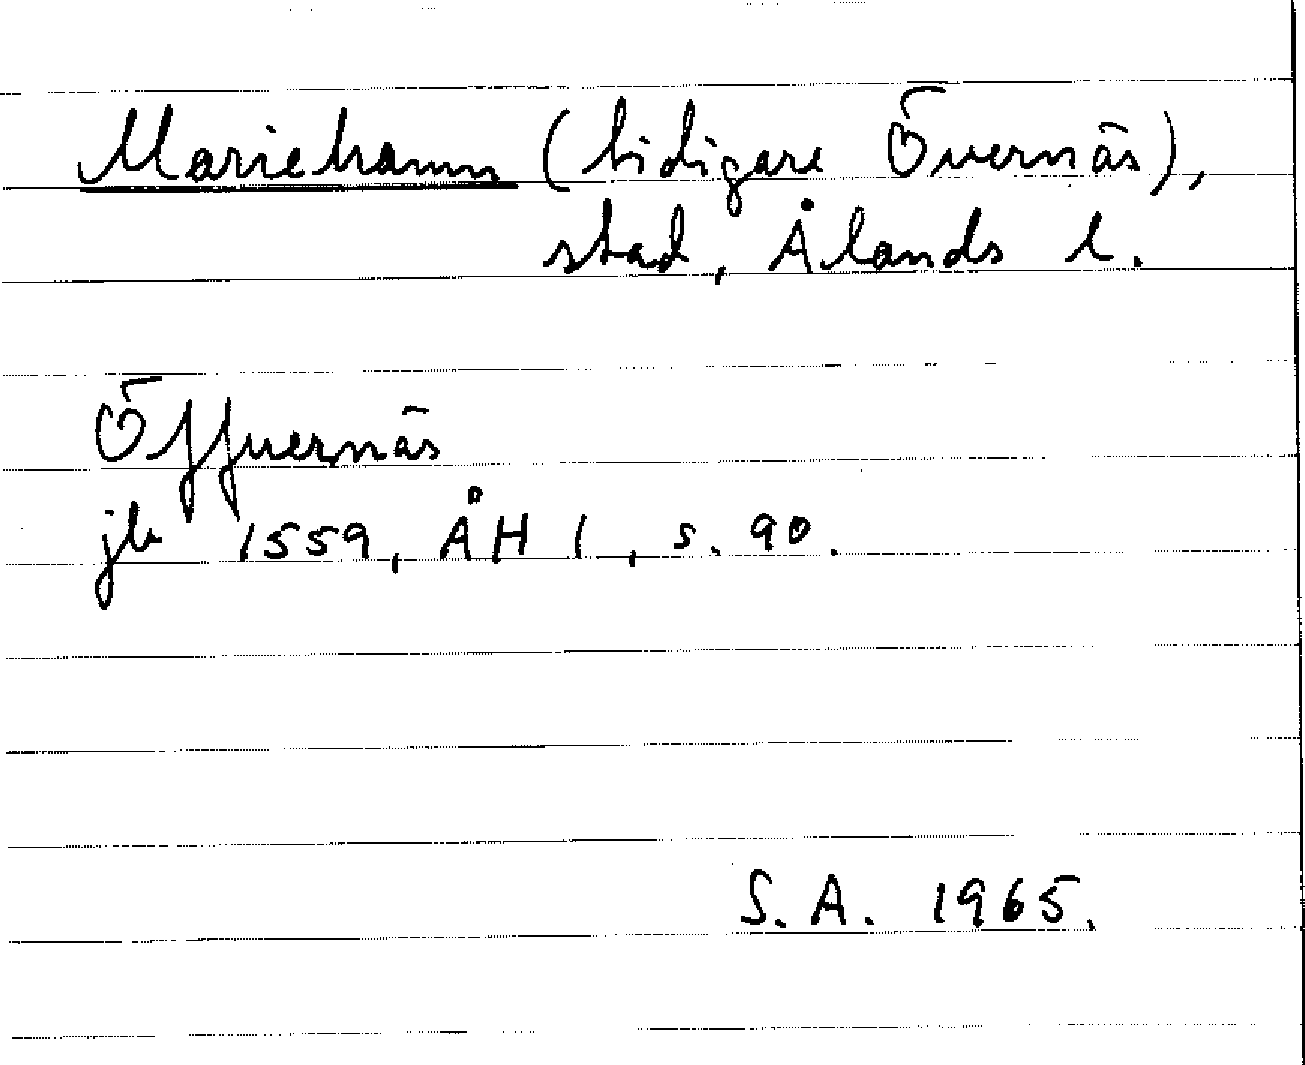 Mariehamn (tidigare Övernäs),
stad, Ålands l.
Öffuernäs
jb 1559, ÅH I, s. 90.
S.A. 1965.